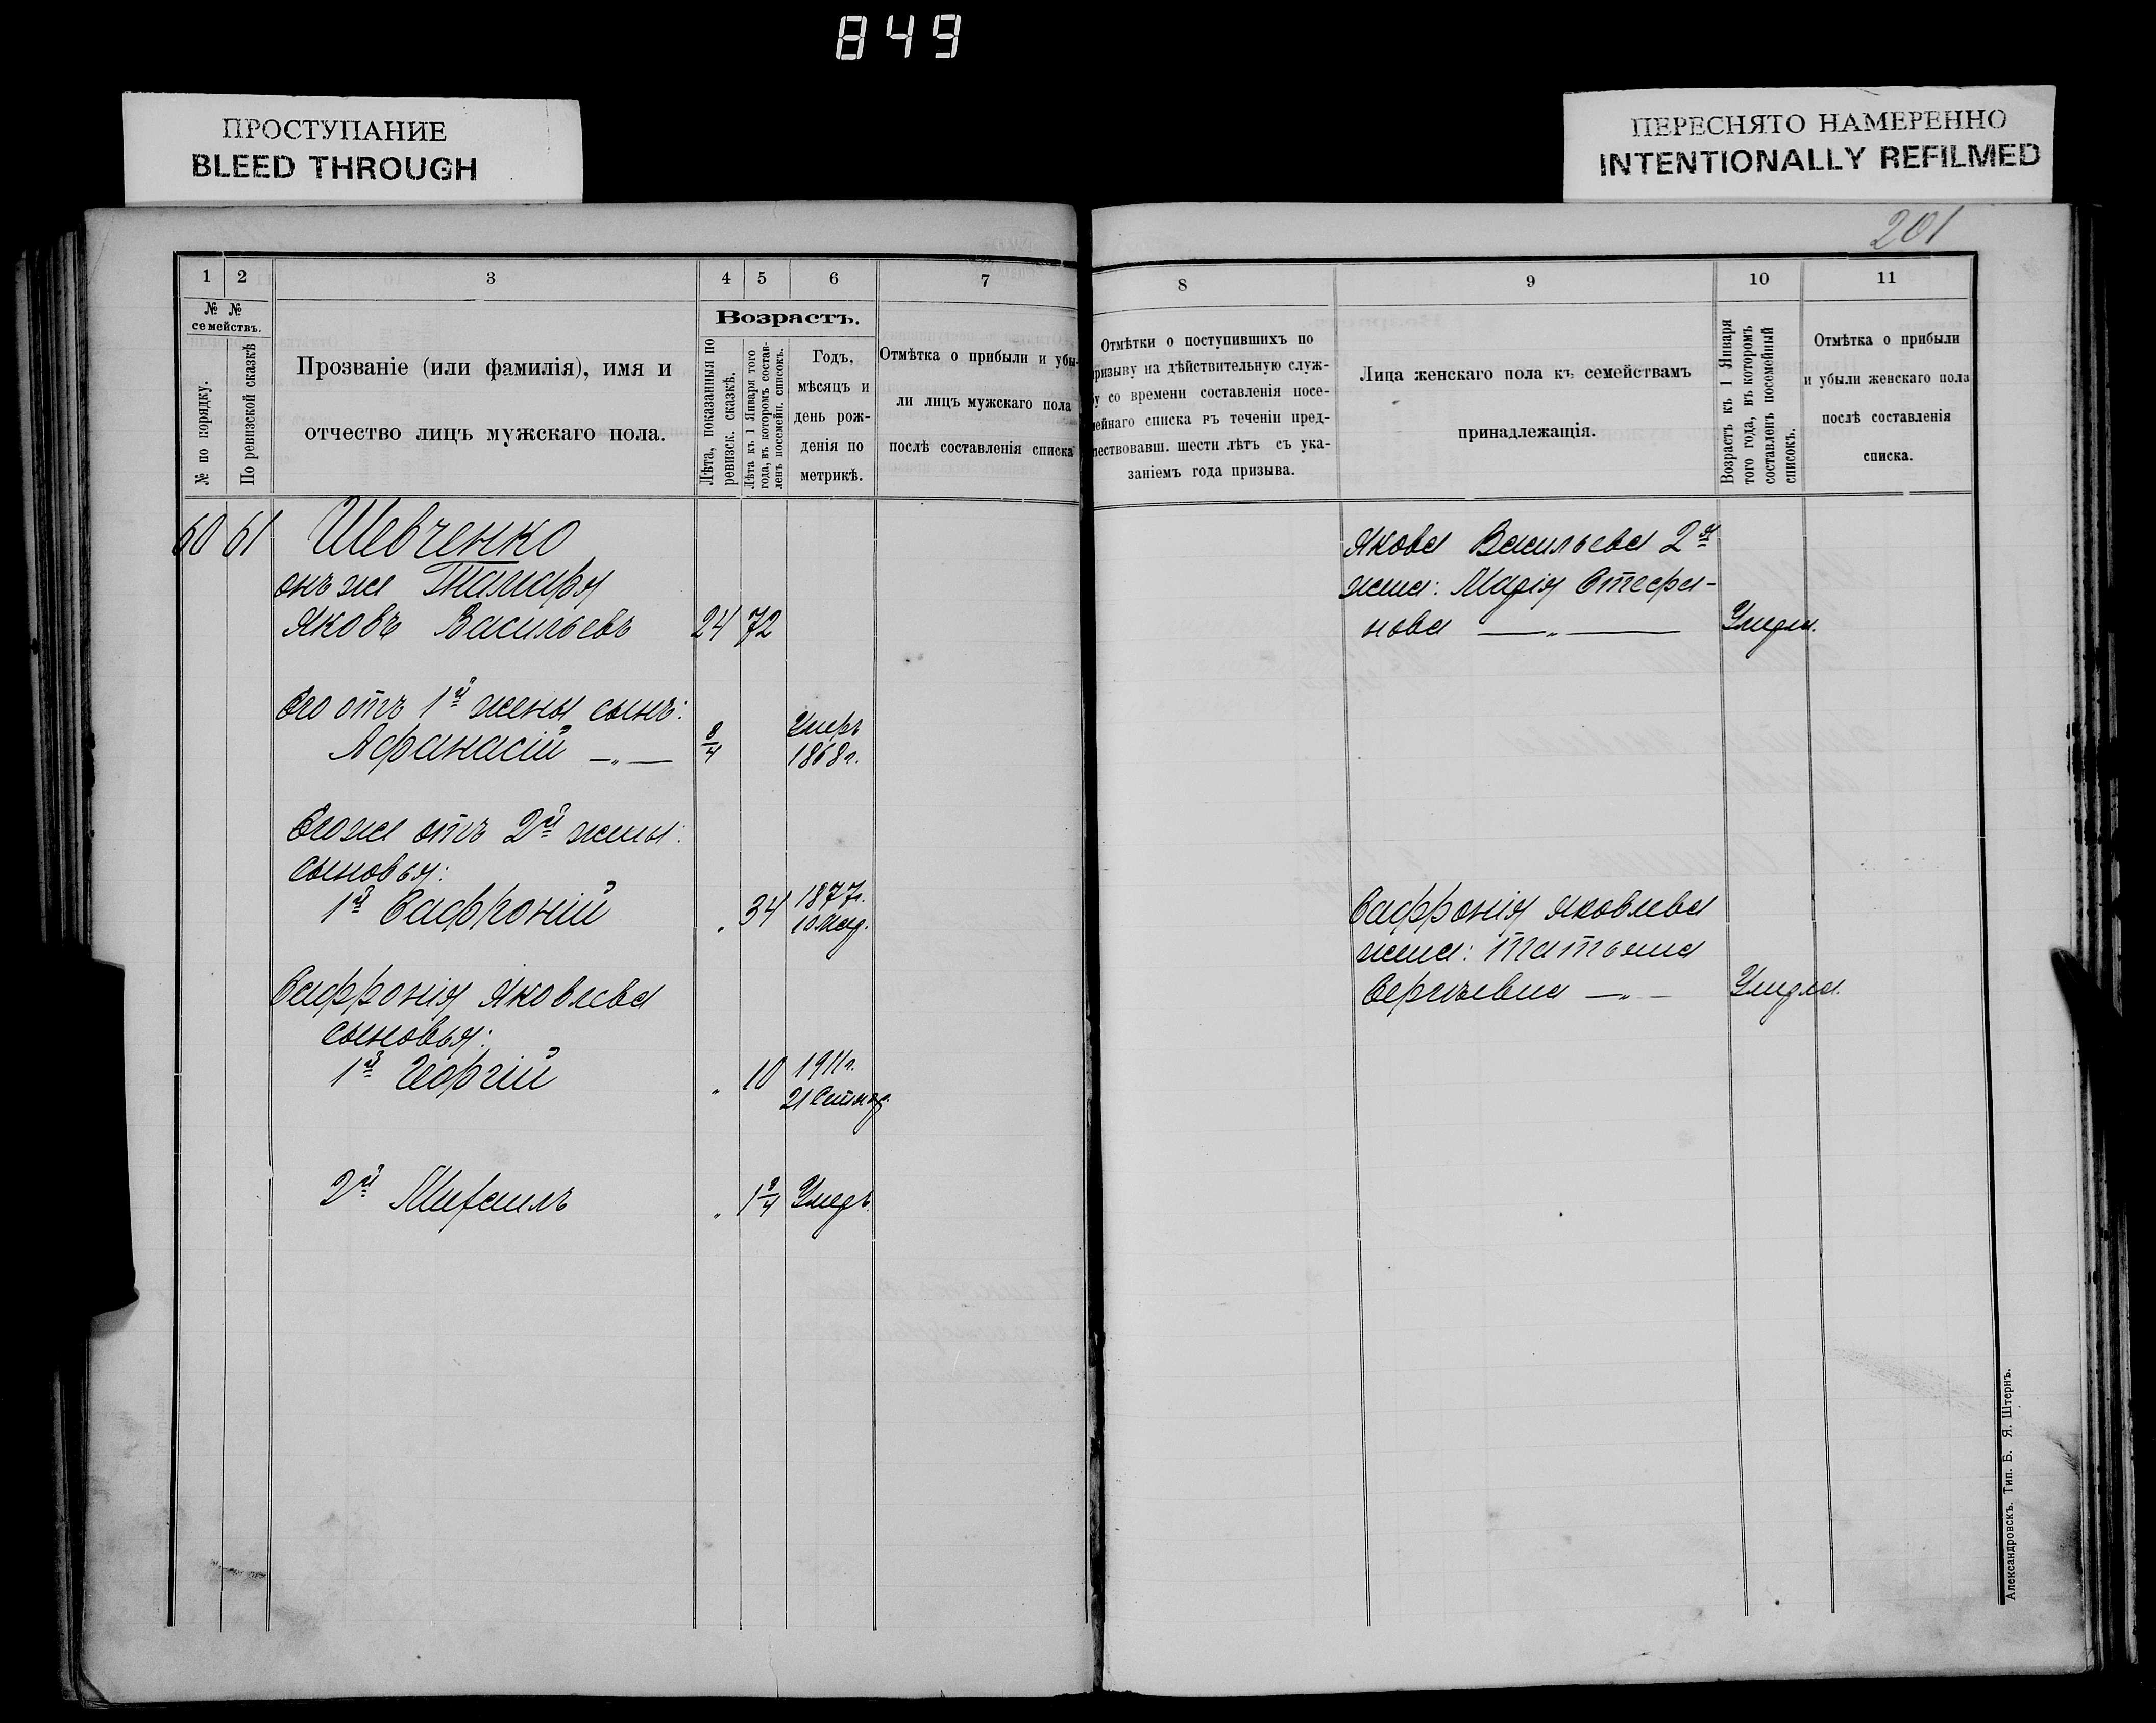 849
ПРОСТУПАНИЕ
BLEED THROUGH
ПЕРЕСНЯТО НАМЕРЕННО
INTENTIONALLY REFILMED
201
1 2 3 4 5 6 7
№ №
семействъ.
№ по порядку.
По ревизской сказкѣ
Прозваніе (или фамилія), имя и
отчество лицъ мужскаго пола.
Возрастъ.
Лѣта, показанныя по
ревизск. сказкѣ.
Лѣта къ 1 Января того
года, въ которомъ состав-
ленъ посемейн. списокъ.
Годъ,
мѣсяцъ и
день рож-
денія по
метрикѣ.
Отмѣтка о прибыли и убы-
ли лицъ мужскаго пола
послѣ составленія списка
60 61 Шевченко
онъ же
Яковъ Васильевъ 24 72
Его отъ 1й жены сынъ:
Афанасій —„— 8/4 Умеръ
1868г.
Его же отъ 2й жены:
сыновья:
1й Сафроній „ 34 1877г.
10 Мар.
Сафронія Яковлева
сыновья:
1й Георгій „ 10 1911г.
21
2й Михаилъ „ Умеръ.
8 9 10 11
Отмѣтки о поступившихъ по
ризыву на дѣйствительную служ-
у со времени составленія посе-
мейнаго списка въ теченіи пред-
шествовавш. шести лѣтъ съ ука-
заніемъ года призыва.
Лица женскаго пола къ семействамъ
принадлежащія.
Возрастъ къ 1 Января
того года, въ которомъ
составленъ посемейный
списокъ.
Отмѣтка о прибыли
и убыли женскаго пола
послѣ составленія
списка.
Якова Васильева 2я
жена: Марія Стефа-
нова —„— Умерла.
Сафронія Яковлева
жена: Татьяна
Сергѣевна —„— Умерла.
Александровскъ. Тип. Б. Я. Штернъ.